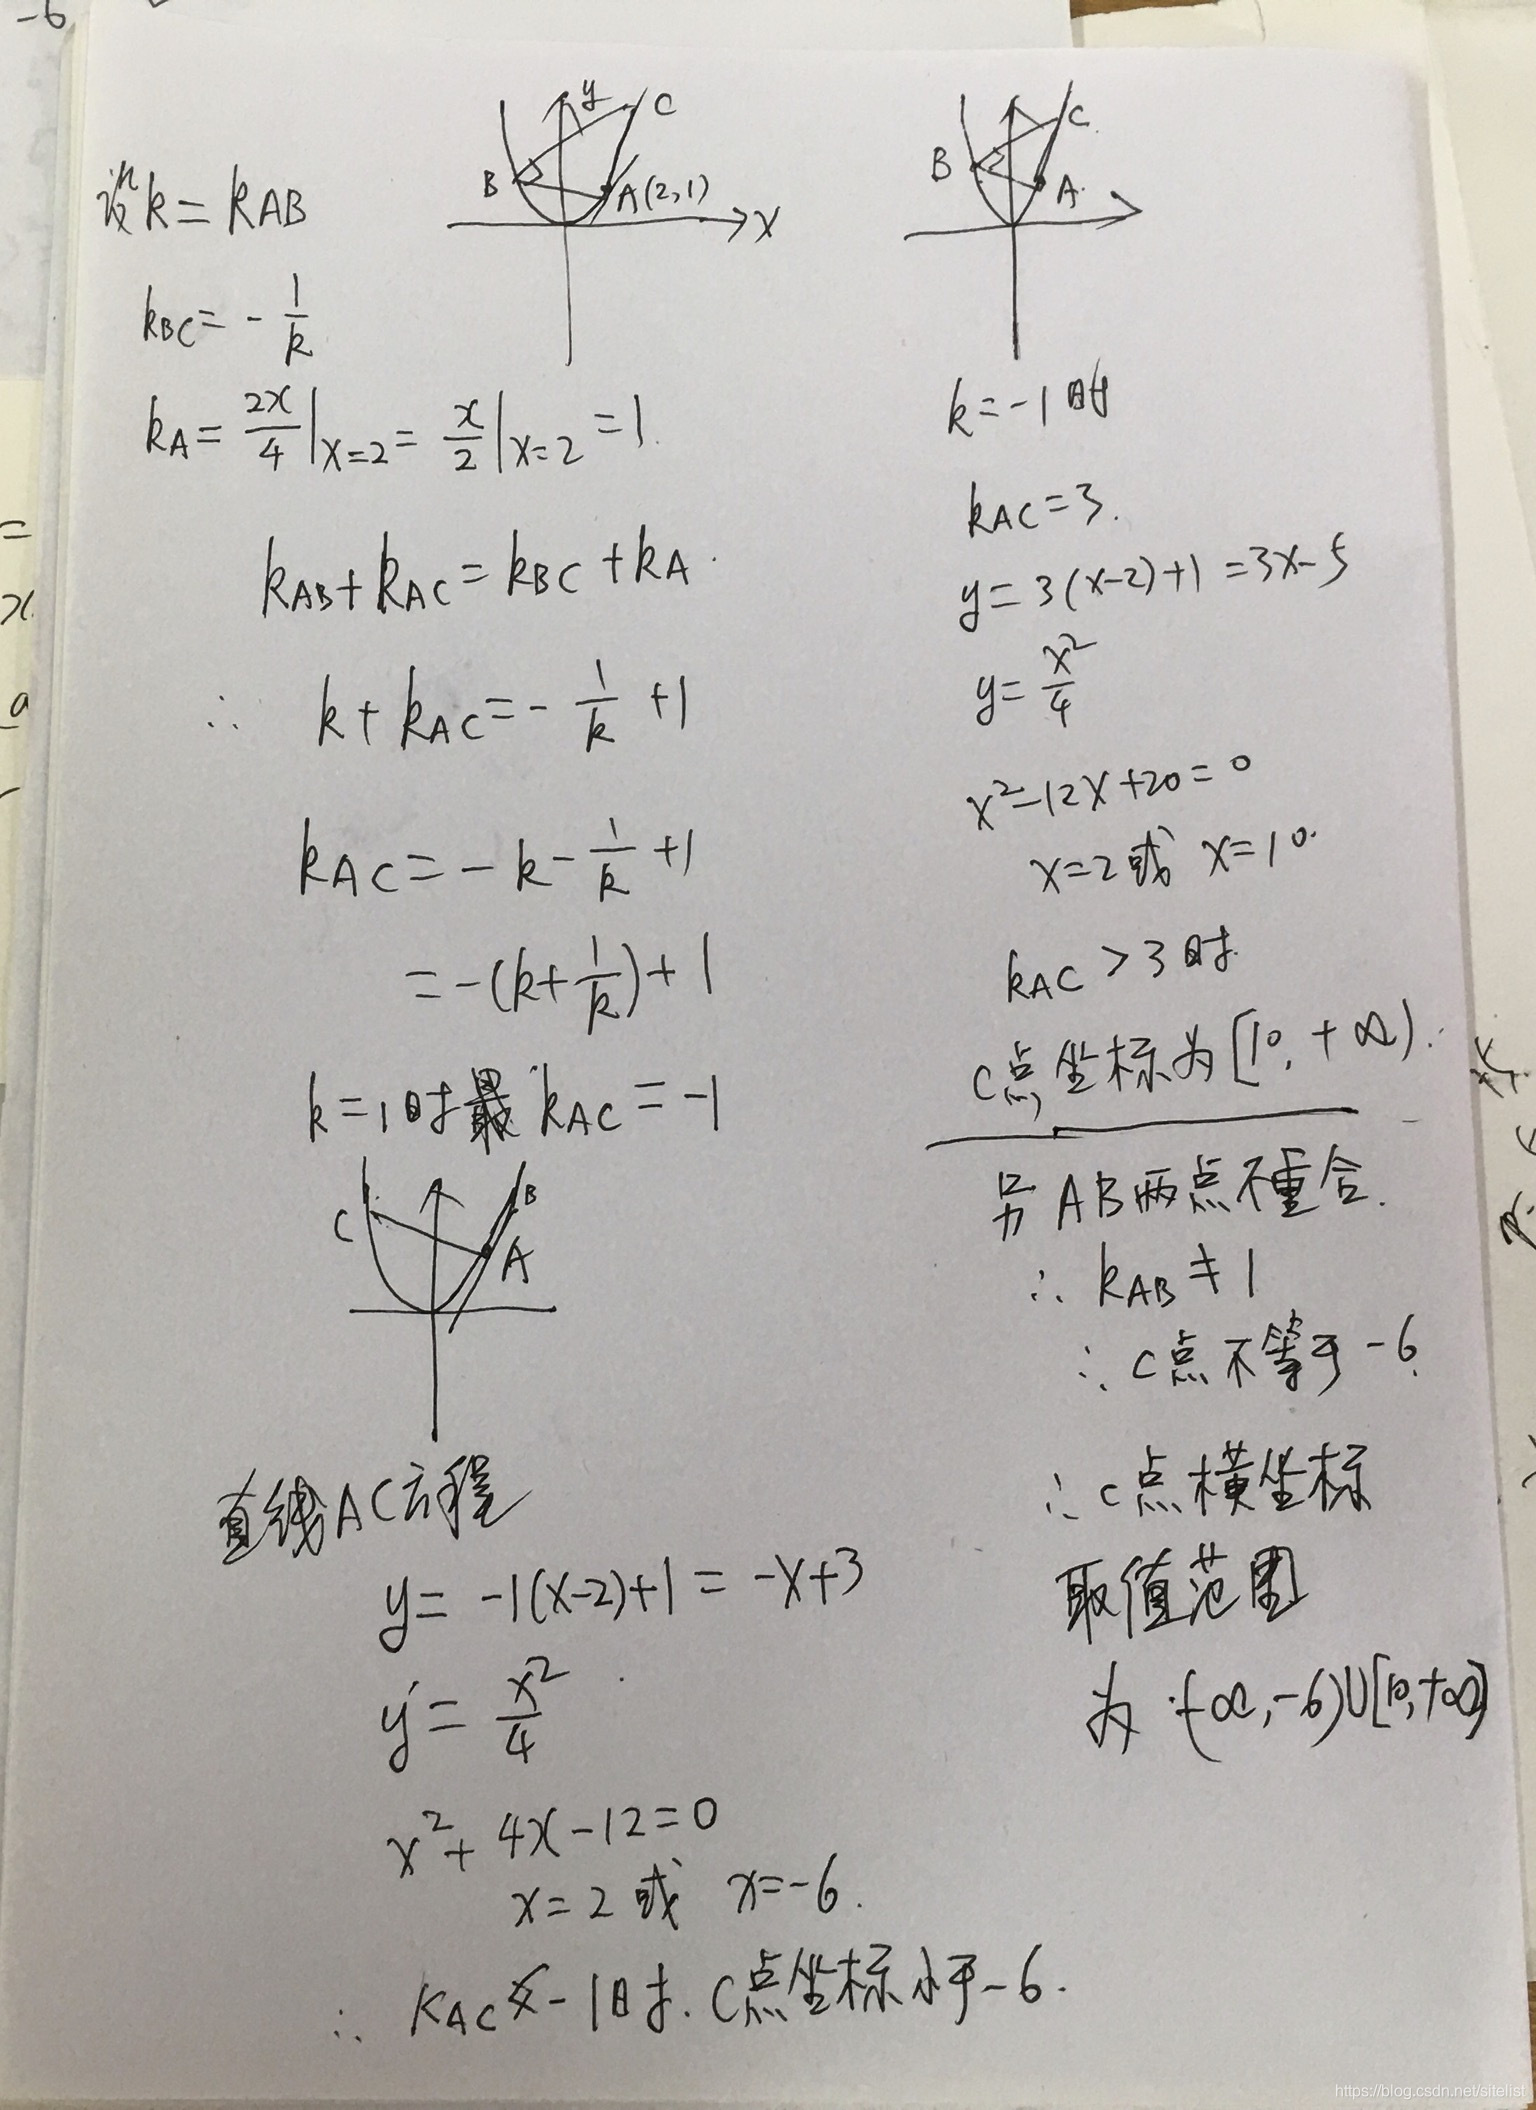 -6
y
C
B
A(2,1)
x
设k=kAB
kBC=-1/k
kA=2x/4|x=2=x/2|x=2=1.
kAB+kAC=kBC+kA.
∴ k+kAC=-1/k+1
kAC=-k-1/k+1
=-(k+1/k)+1
k=1时最kAC=-1
C
B
A
直线AC方程
y=-1(x-2)+1=-x+3
y=x²/4
x²+4x-12=0
x=2或 x=-6.
∴ kAC<-1时.C点坐标小于-6.
C.
B
A.
k=-1时
kAC=3.
y=3(x-2)+1=3x-5
y=x²/4
x²-12x+20=0
x=2或 x=10.
kAC>3时.
C点坐标为[10,+∞).
另AB两点不重合.
∴ kAB≠1
∴ C点不等于-6.
∴ C点横坐标
取值范围
为(-∞,-6)∪[10,+∞)
=
x
a
https://blog.csdn.net/sitelist